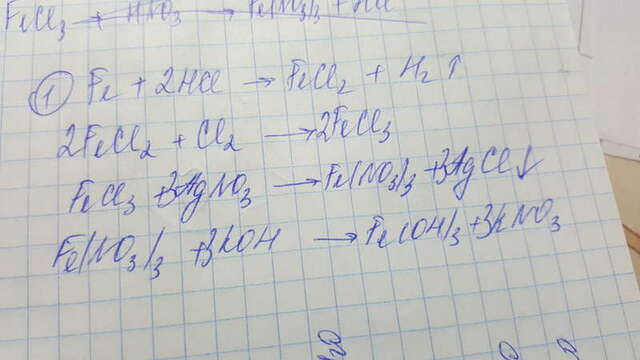 FeCl₃ + HNO₃ →
① Fe + 2HCl → FeCl₂ + H₂↑
2FeCl₂ + Cl₂ → 2FeCl₃
FeCl₃ + 3AgNO₃ → Fe(NO₃)₃ + 3AgCl↓
Fe(NO₃)₃ + 3KOH → Fe(OH)₃ + 3KNO₃